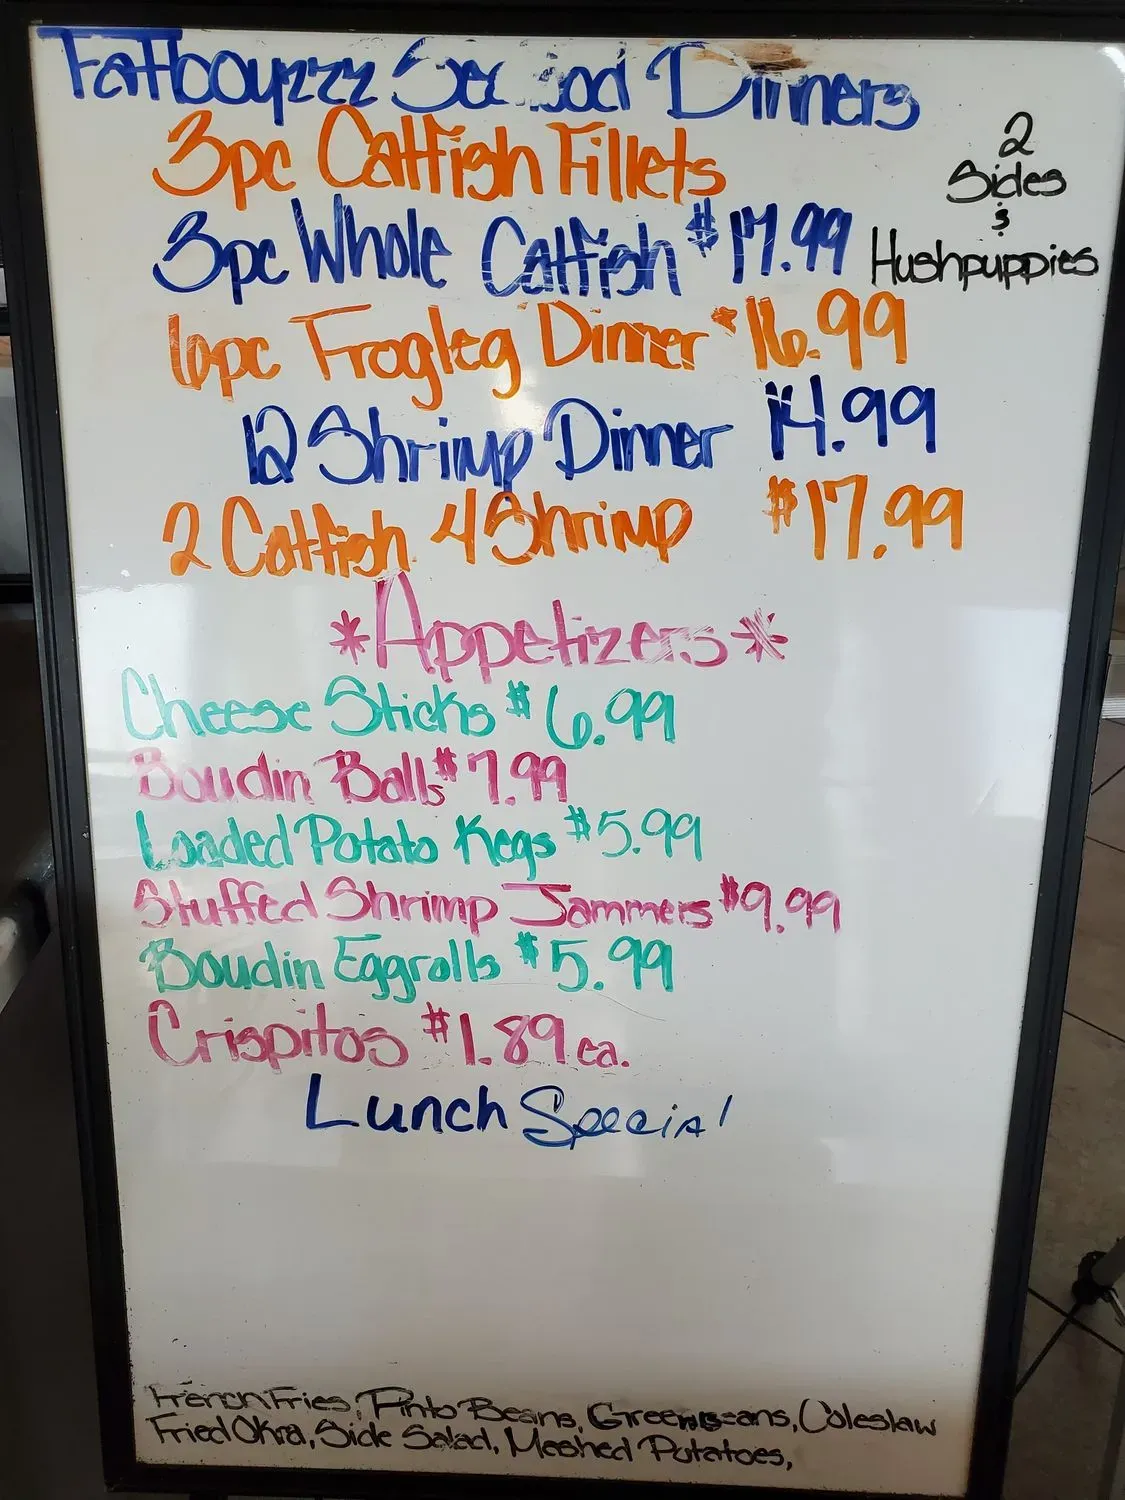 Fatboyzzz Seafood Dinners
3pc Catfish Fillets
2
Sides
&
Hushpuppies
3pc Whole Catfish $17.99
6pc Frogleg Dinner $16.99
12 Shrimp Dinner 14.99
2 Catfish 4 Shrimp $17.99
*Appetizers*
Cheese Sticks $6.99
Boudin Balls $7.99
Loaded Potato Kegs $5.99
Stuffed Shrimp Jammers $9.99
Boudin Eggrolls $5.99
Crispitos $1.89 ea.
Lunch Special
French Fries, Pinto Beans, Green Beans, Coleslaw
Fried Okra, Side Salad, Mashed Potatoes,